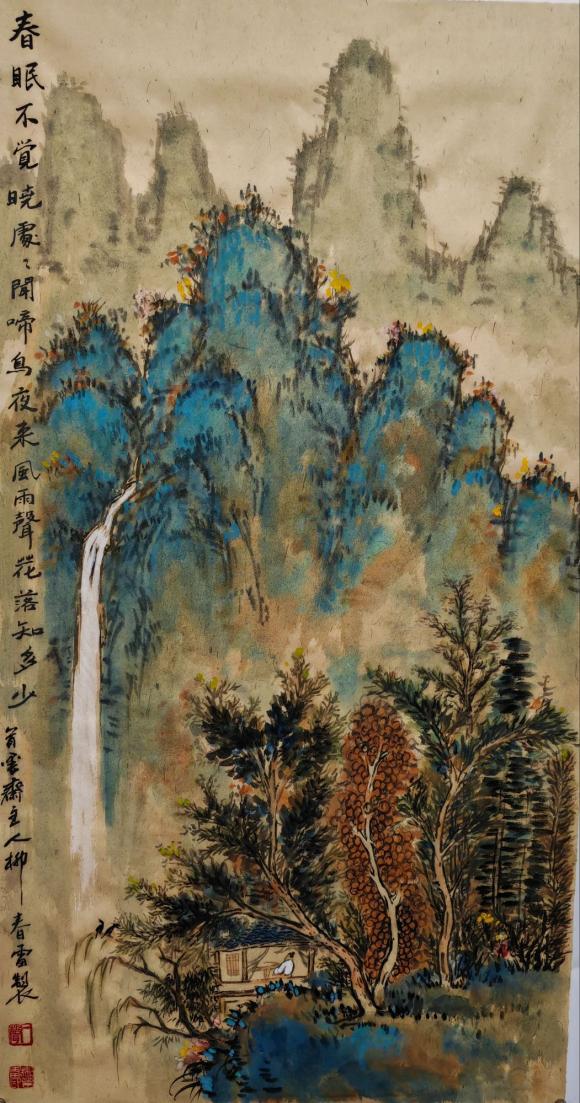 春眠不覚曉處々聞啼鳥夜来風雨聲花落知多少 雲齋主人柳春製